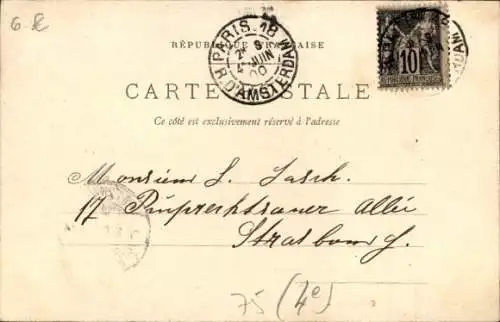 6.-€
RÉPUBLIQUE FRANÇAISE
PARIS . 18
2E 9
4 JUIN
00
R. D'AMSTERDAM
10
CARTE POSTALE
Ce côté est exclusivement réservé à l'adresse
Monsieur L. Lasch.
17 Ruprechtsauer Allée
Strasbourg.
75 (4e)